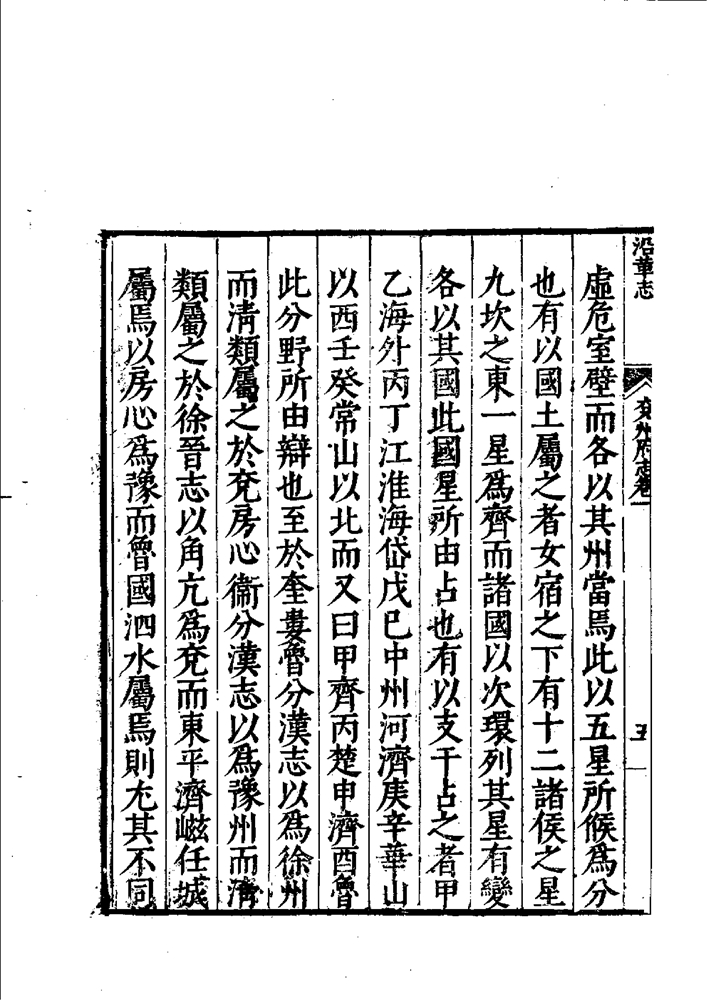 沿革志
兗州府志卷一
五
虛危室壁而各以其州當焉此以五星所候爲分
也有以國土屬之者女宿之下有十二諸侯之星
九坎之東一星爲齊而諸國以次環列其星有變
各以其國此國星所由占也有以支干占之者甲
乙海外丙丁江淮海岱戊巳中州河濟庚辛華山
以西壬癸常山以北而又曰甲齊丙楚申濟酉魯
此分野所由辯也至於奎婁魯分漢志以爲徐州
而清類屬之於兗房心衞分漢志以爲豫州而清
類屬之於徐晉志以角亢爲兗而東平濟嵫任城
屬焉以房心爲豫而魯國泗水屬焉則尤其不同